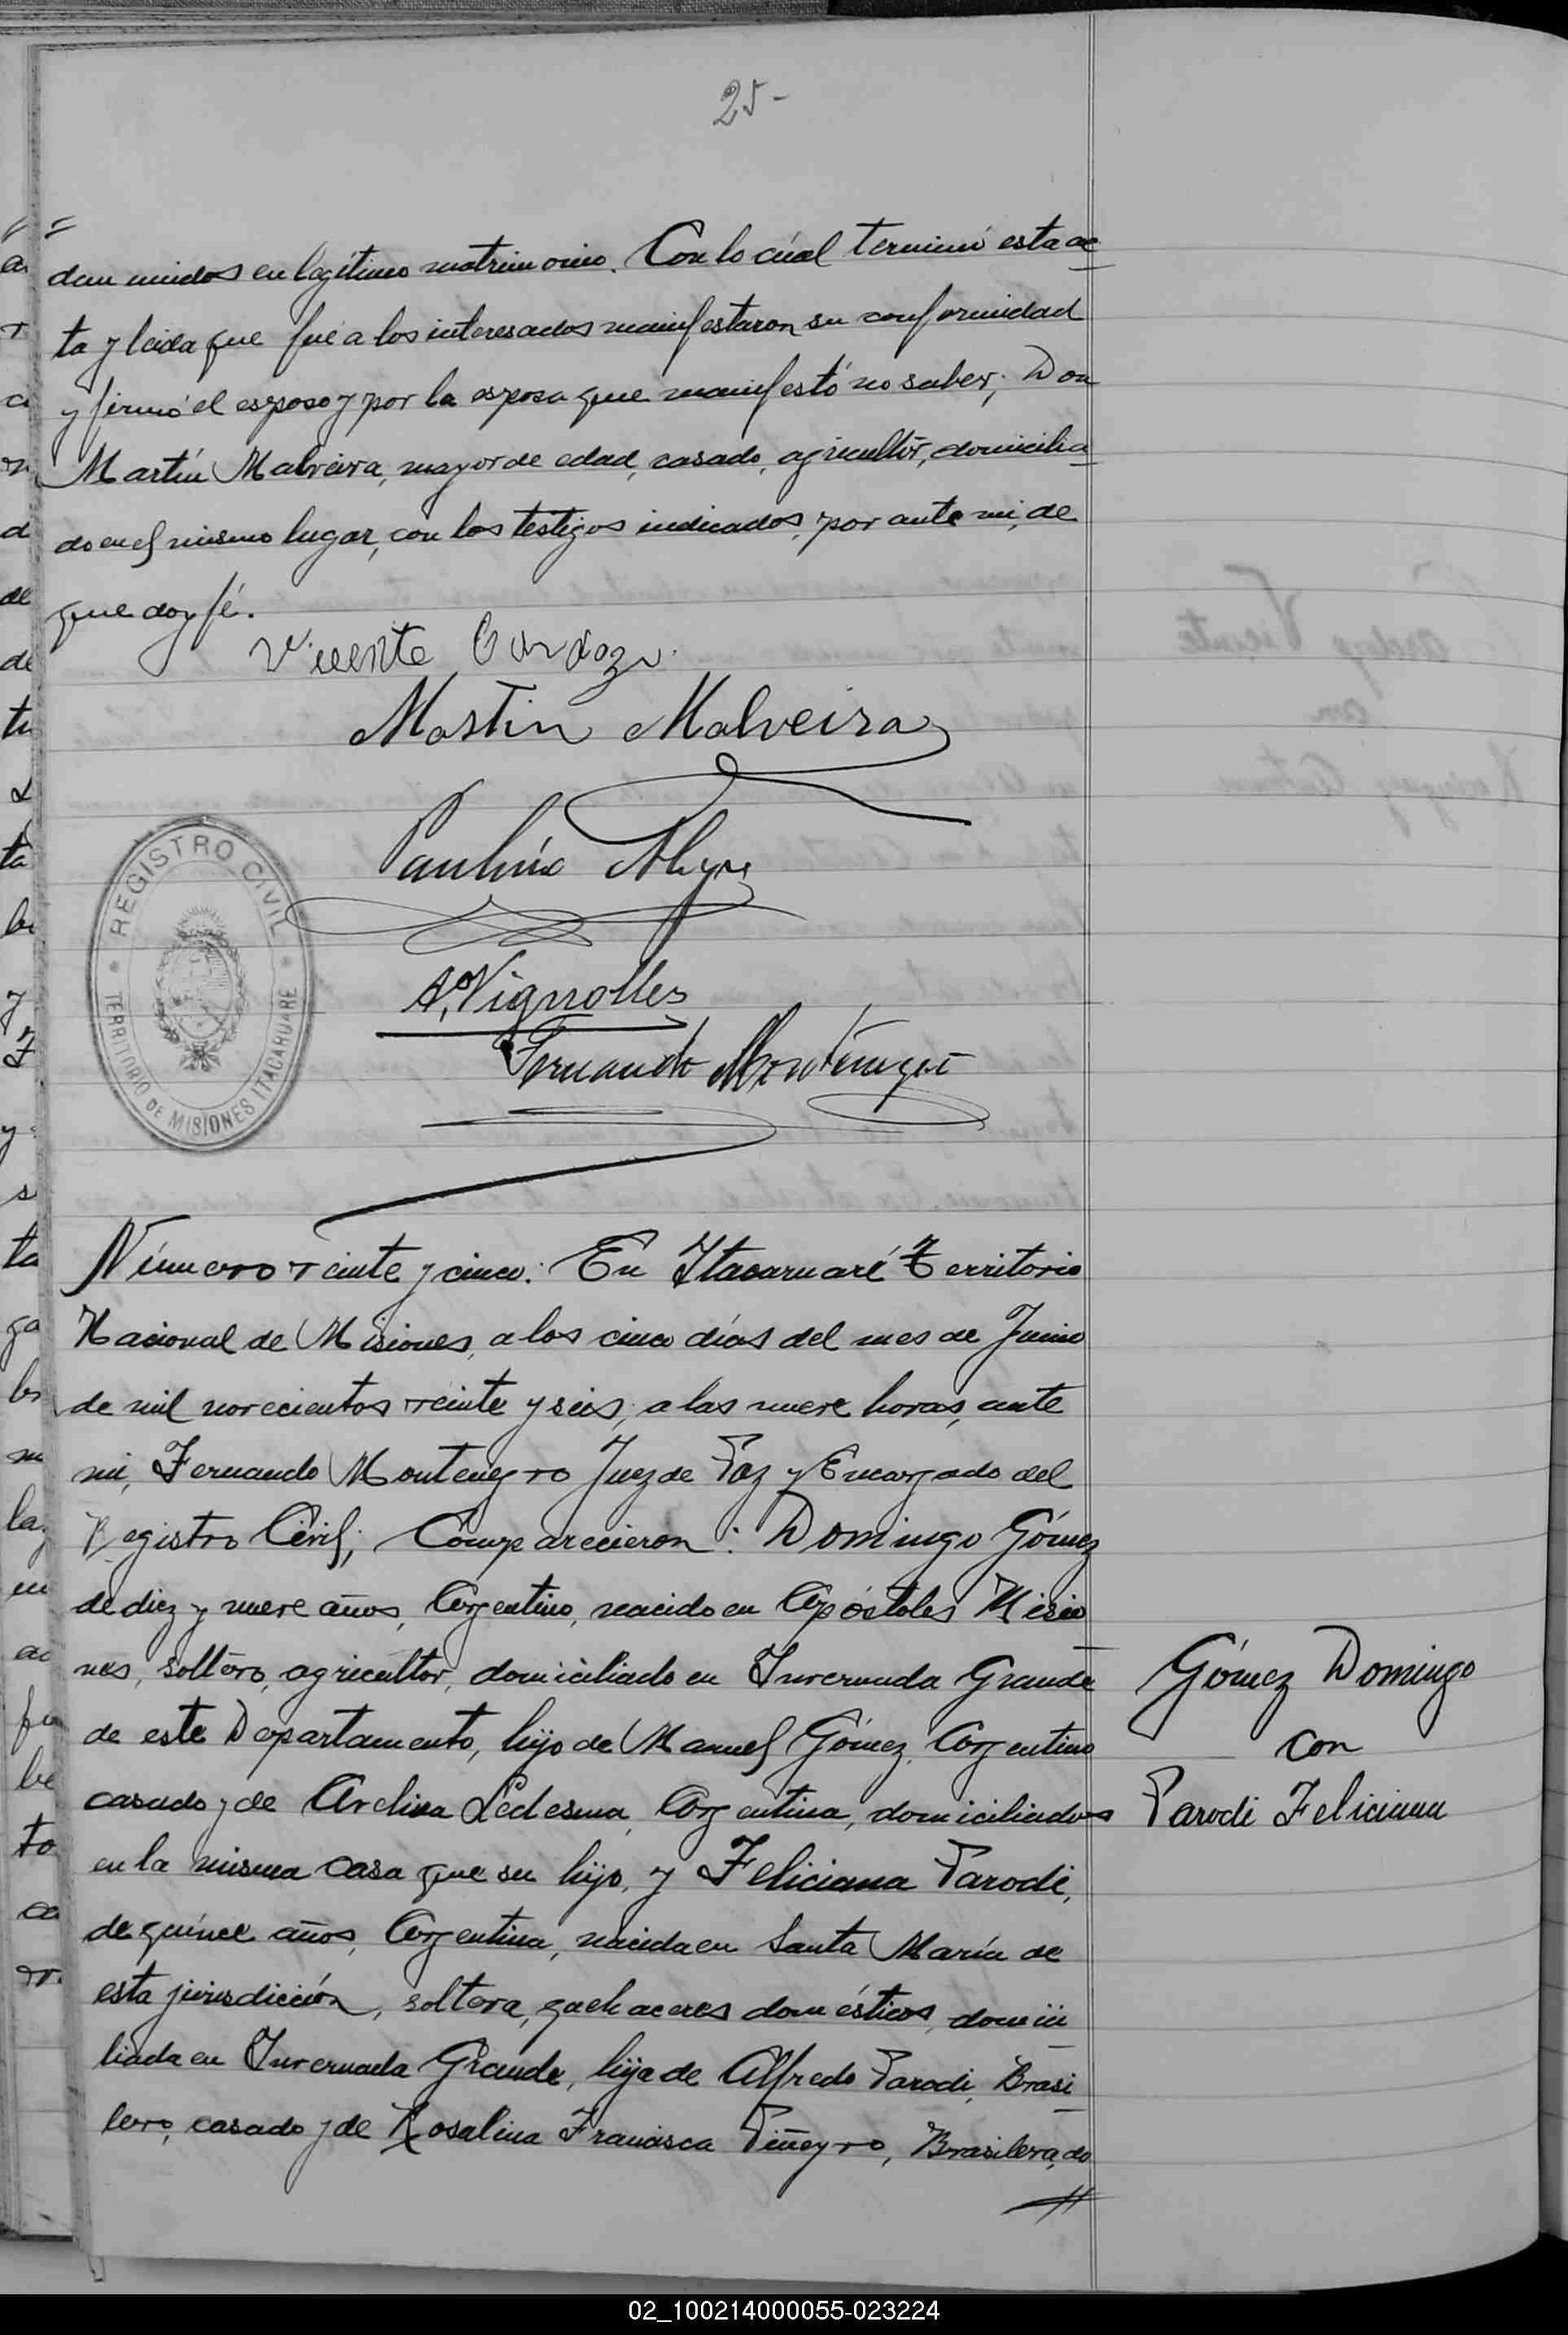 25-
dan unidos en legitimo matrimonio. Con lo cúal terminó esta ac
ta y leida que fué a los interesados manifestaron su conformidad
y firmó el esposo y por la esposa que manifestó no saber; Don
Martín Malveira, mayor de edad, casado, agricultor, domicilia
do en el mismo lugar, con los testigos indicados, por ante mi, de
que doy fé.
Vicente Cardozo
Martin Malveira
Paulino
A. Vignolles
Fernando Montenegro
REGISTRO CIVIL
TERRITORIO DE MISIONES ITACARUARE
Número veinte y cinco: En Itacaruaré Territorio
Nacional de Misiones, a los cinco días del mes de Junio
de mil novecientos veinte y seis, a las nueve horas, ante
mi, Fernando Montenegro Juez de Paz y Encargado del
Registro Civil, Comparecieron: Domingo Gómez
de diez y nueve años, Argentino, nacido en Apóstoles Misio
nes, soltero, agricultor, domiciliado en Invernada Grande
de este Departamento, hijo de Manuel Gómez, Argentino
casado y de Avelina Ledesma, Argentina, domiciliados
en la misma casa que su hijo, y Feliciana Parodi,
de quince años, Argentina, nacida en Santa María de
esta jurisdicción, soltera, quehaceres domésticos, domici
liada en Invernada Grande, hija de Alfredo Parodi, Brasi
lero, casado y de Rosalina Francisca Piñeyro, Brasilera, do
Gómez Domingo
con
Parodi Feliciana
02_100214000055-023224